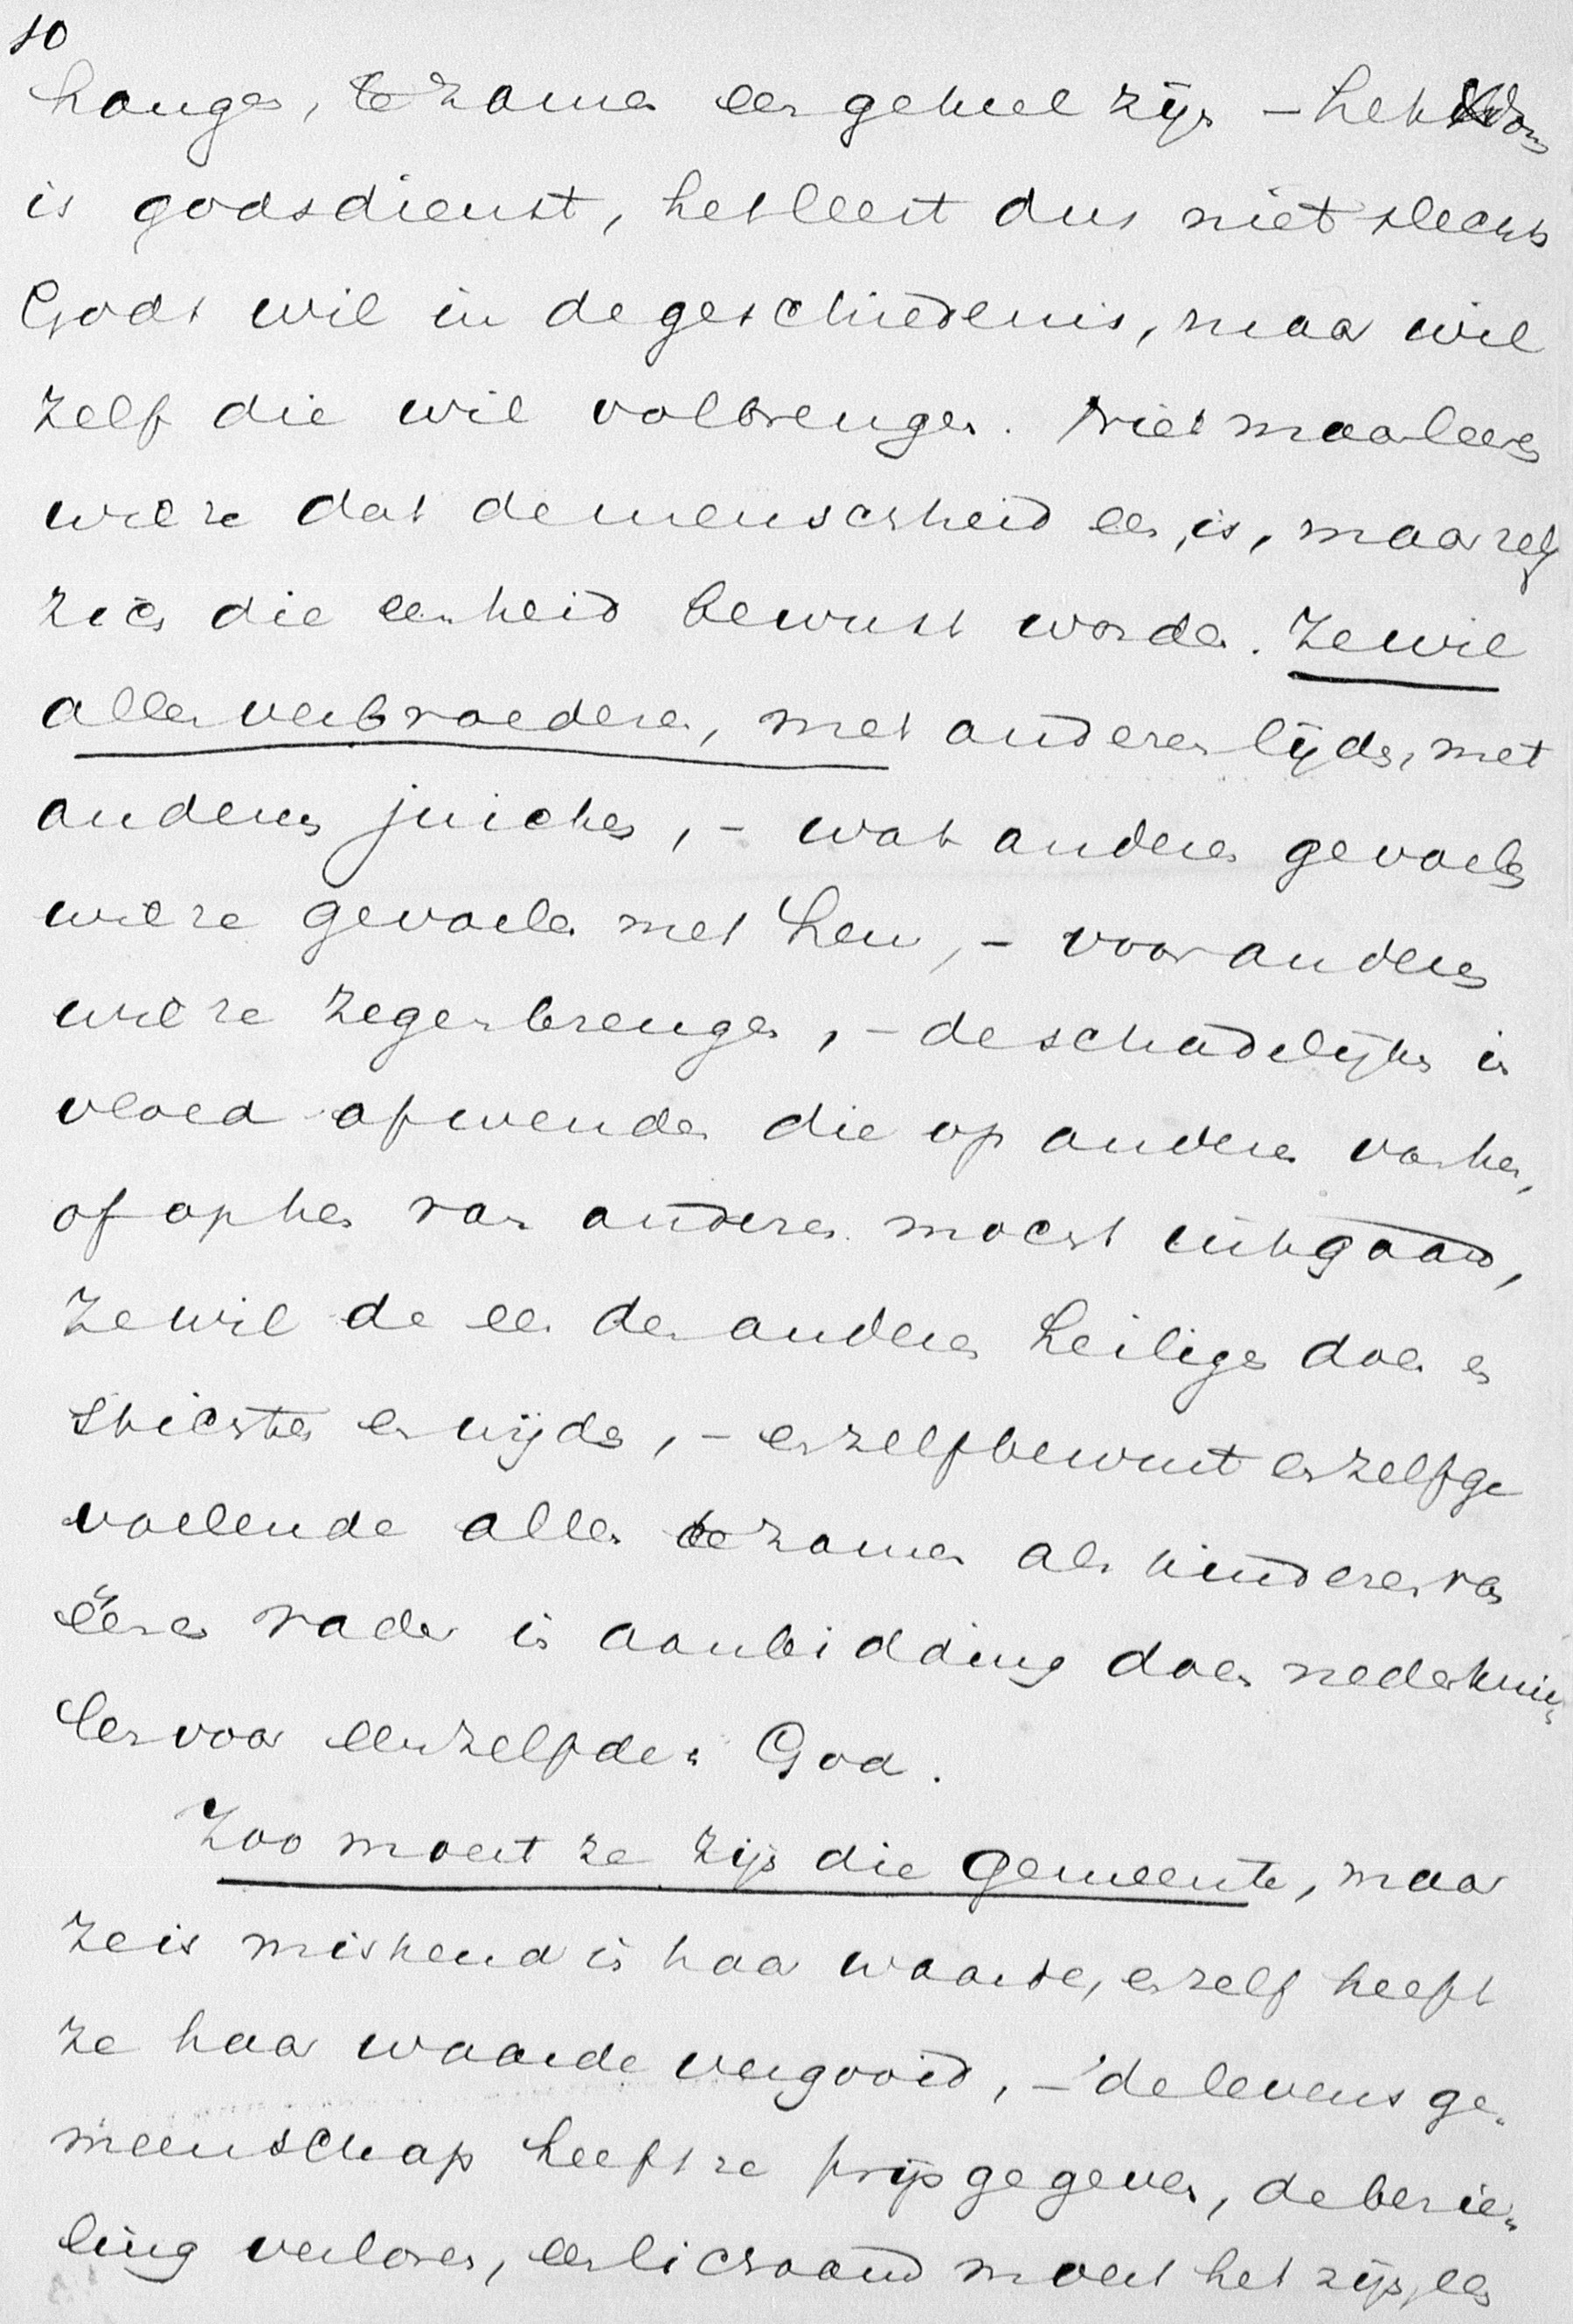 10
hangen, te zamen een geheel zijn – het
is godsdienst, het leert dus niet slechts
Gods wil in de geschiedenis, maar wil
zelf die wil volbrengen. Niet maar leeren
wil ze dat de menschheid een is, maar zelf
zich die eenheid bewust worden. Ze wil
allen verbroederen, met anderen lijden, met
anderen juichen, – wat anderen gevoelen
wil ze gevoelen met hen, – voor anderen
wil ze zegen brengen, – de schadelijken in
vloed afwenden die op anderen van hen,
of op hen van anderen mocht uitgaan,
ze wil de een den anderen heiligen doen en
stichten en wijden, – en zelfbewust en zelfge
voelende allen te zamen als kinderen van
éénen vader in aanbidding doen nederknie„
len voor eenzelfden God.
Zoo moest ze zijn die gemeente, maar
ze is miskend in haar waarde, en zelf heeft
ze haar waarde vergooid, – de levensge„
meenschap heeft ze prijsgegeven, de bezie„
ling verloren, een lichaam moest het zijn, een